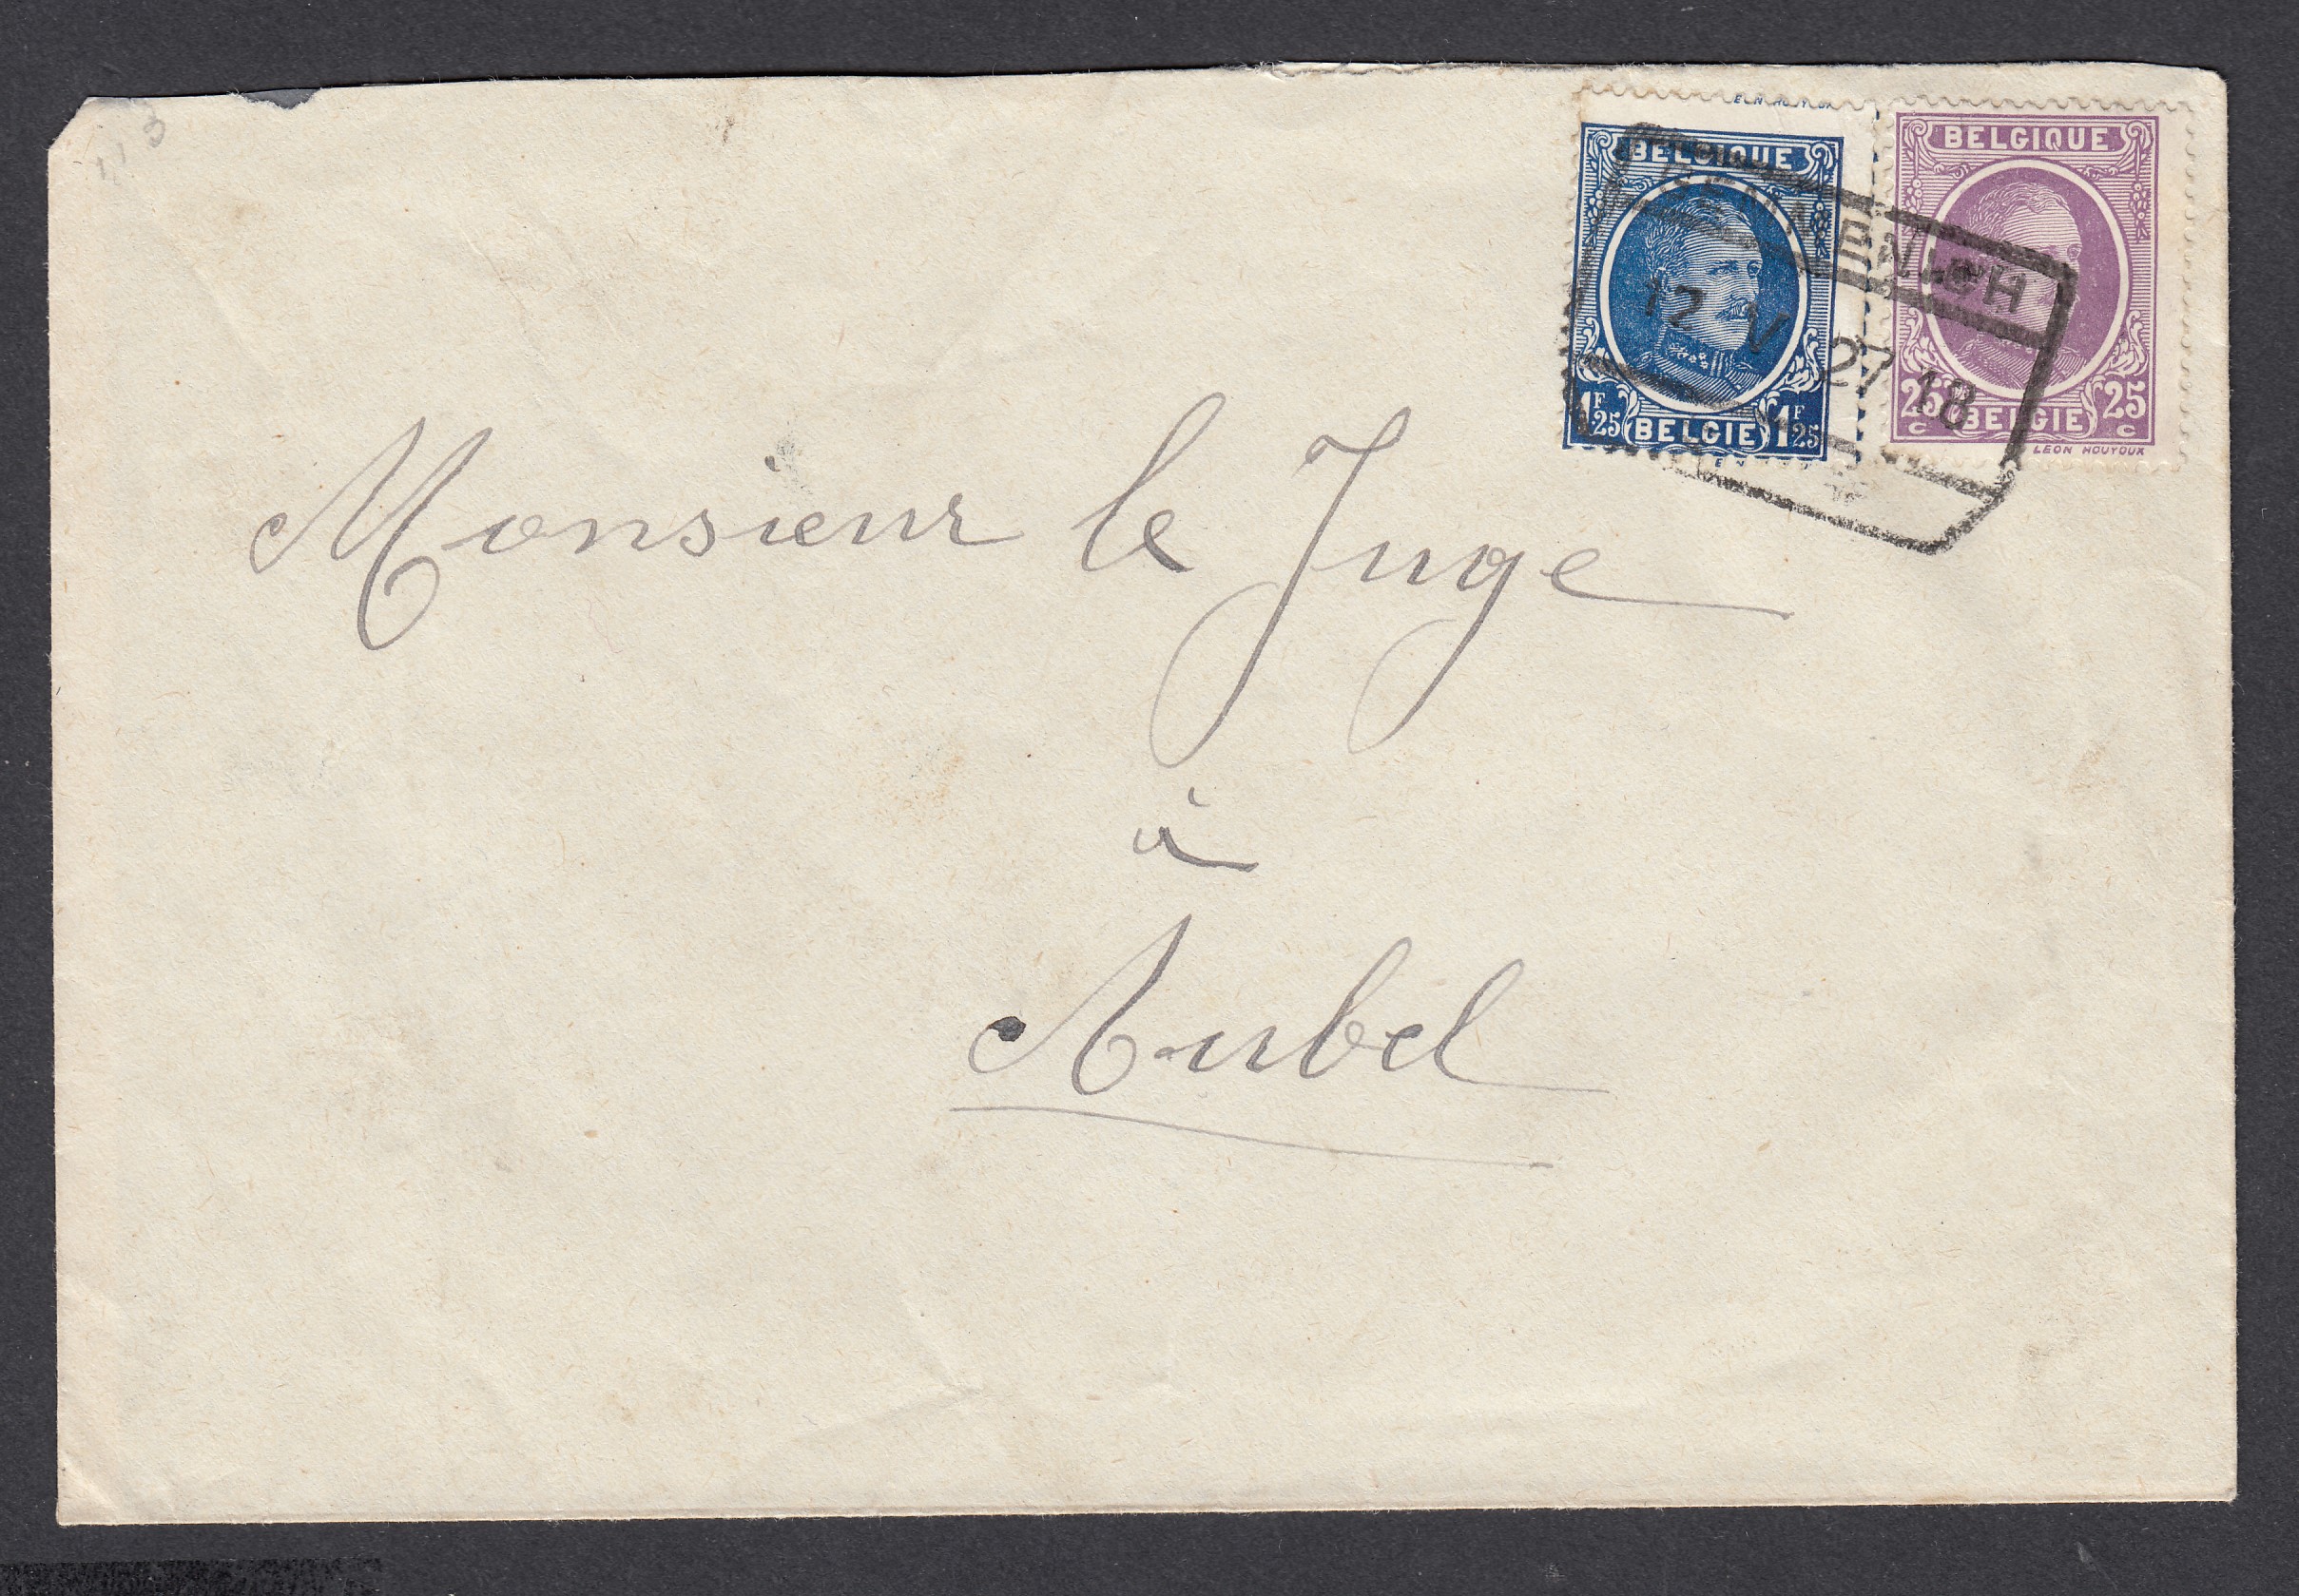 BELGIQUE
1F25 BELGIE 1F25
BELGIQUE
25c BELGIE 25c
LÉON HOUYOUX
12 V 27 18
Monsieur le Juge
à
Aubel